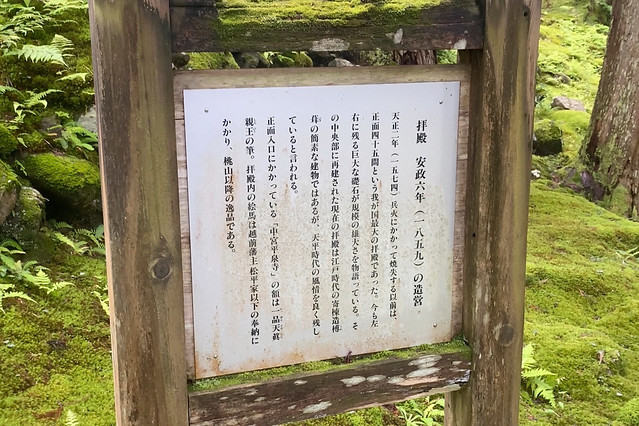 拝殿 安政六年(一八五九)の造営
天正二年(一五七四)兵火にかかって焼失する以前は、
正面四十五間という我が国最大の拝殿であった。今も左
右に残る巨大な礎石が規模の雄大さを物語っている。そ
の中央部に再建された現在の拝殿は江戸時代の寄棟造榑
葺の簡素な建物ではあるが、天平時代の風情を良く残し
ていると言われる。
正面入口にかかっている「中宮平泉寺」の額は一品天眞
親王の筆。拝殿内の絵馬は越前藩主松平家以下の奉納に
かかり、桃山以降の逸品である。